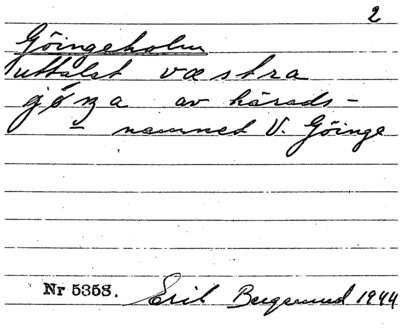 2
Göingeholm
uttalet væstra
jøŋa av härads-
namned V. Göinge
Nr 5358. Erik Bergerund 1944